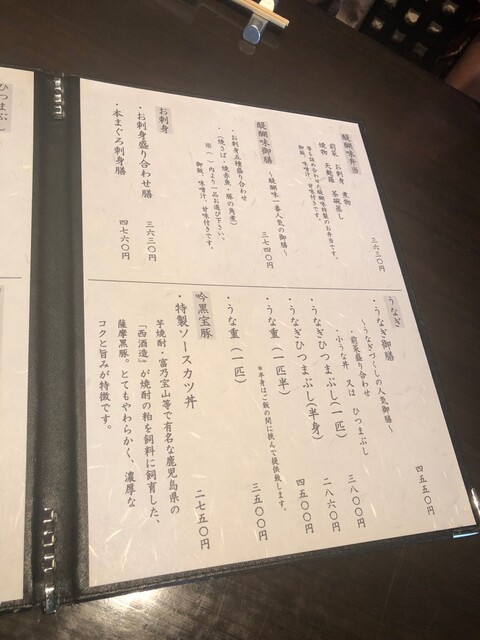 醍醐味弁当
前菜 お刺身 煮物
焼物 天麩羅 茶碗蒸し
等を詰め合せた醍醐味特製のお弁当です。
御飯、味噌汁、甘味付きです。
三六三〇円
醍醐味御膳 ~醍醐味一番人気の御膳~
・お刺身五種盛り合わせ
・(焼さば・焼赤魚・豚の角煮)
※( )内より一品お選び下さい。
御飯、味噌汁、甘味付きです。
三七四〇円
お刺身
・お刺身盛り合わせ膳 三六三〇円
・本まぐろ刺身膳 四七六〇円
うなぎ
・うなぎ御膳 四五五〇円
~うなぎづくしの人気御膳~
・前菜盛り合わせ
・小うな丼 又は ひつまぶし
・うなぎひつまぶし(一匹) 三八〇〇円
・うなぎひつまぶし(半身) 二八六〇円
・うな重(一匹半) 四五〇〇円
*半身はご飯の間に挟んで提供致します。
・うな重(一匹) 三五〇〇円
吟黒宝豚
・特製ソースカツ丼 二七五〇円
芋焼酎・富乃宝山等で有名な鹿児島県の
「西酒造」が焼酎の粕を飼料に飼育した、
薩摩黒豚。とてもやわらかく、濃厚な
コクと旨みが特徴です。
ひつまぶし